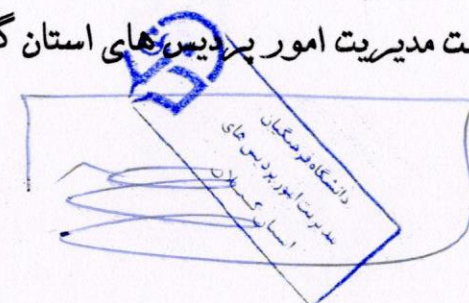 ت مدیریت امور پردیس های استان گ
دانشگاه فرهنگیان
مدیریت امور پردیس های
استان گلستان